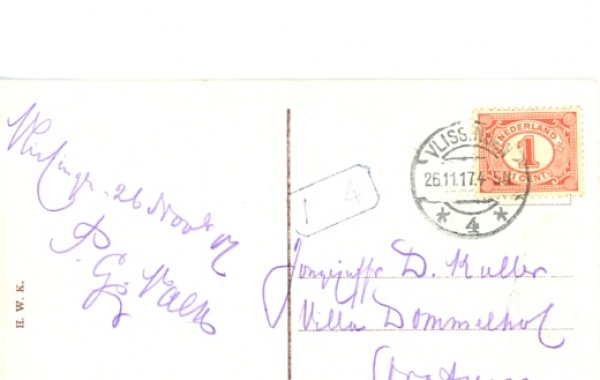 Vlissingen 26 Nov. 17
P. G. Valk
H. W. K.
1 4
VLISSINGEN
26.11.17.4-5N
4
NEDERLAND
1
CENT
Jongejuffr D. Kuller
Villa Dommelhof